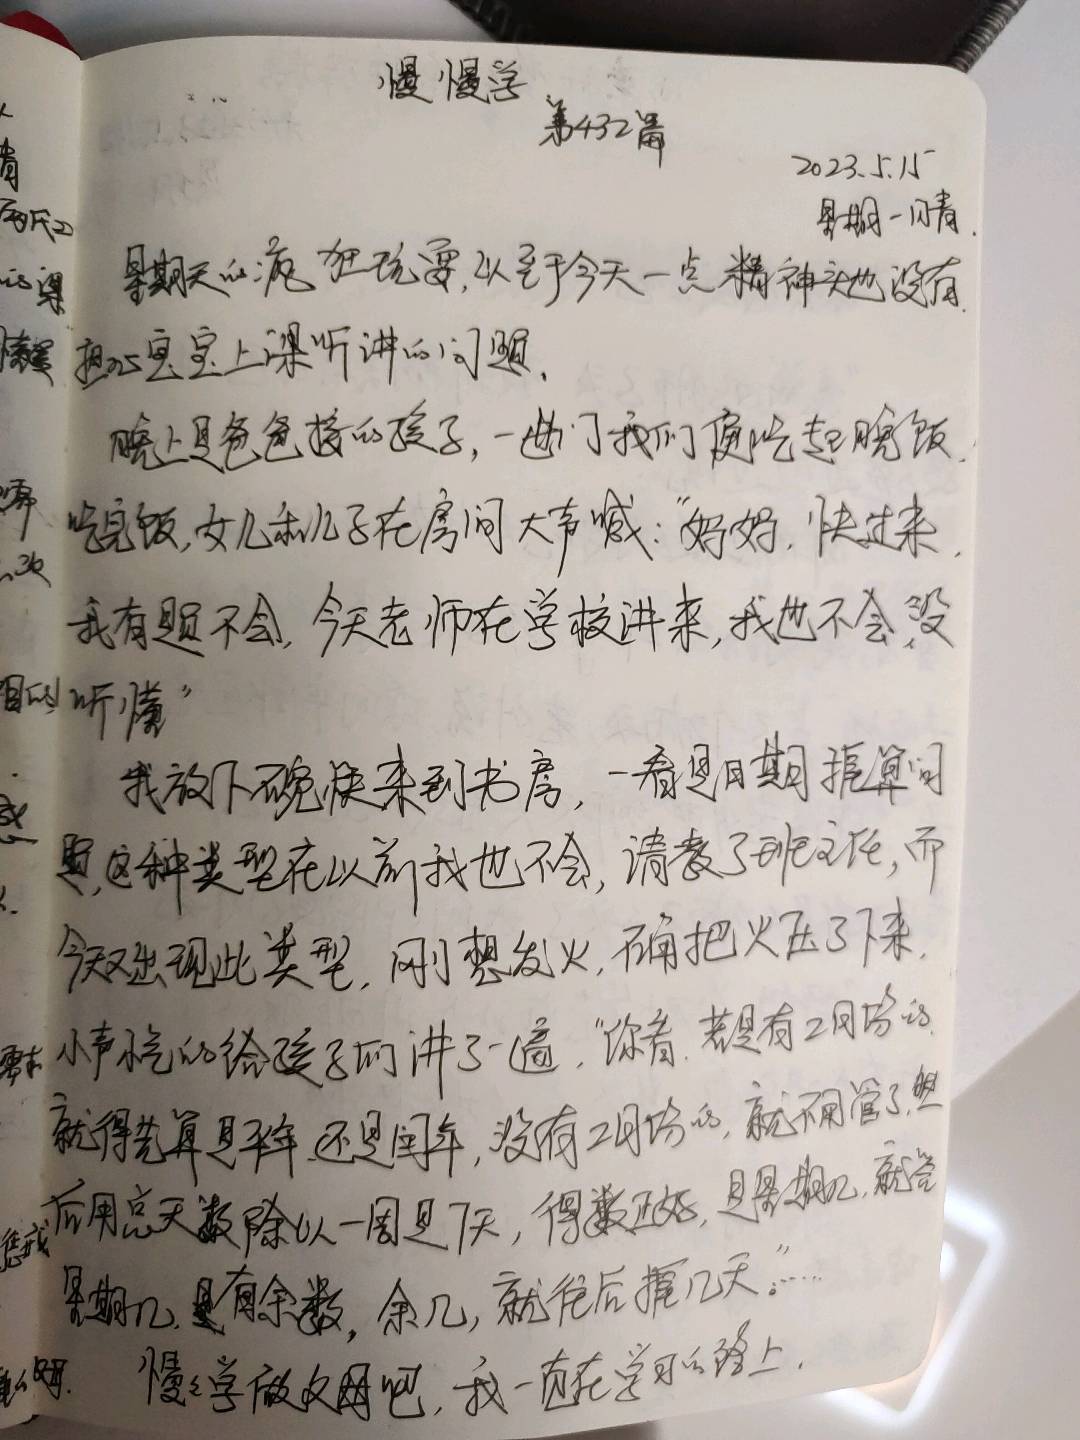 慢慢学
第432篇
2023.5.15
星期一 晴.
星期天的疯狂玩耍,以至于今天一点精神头也没有.
担心宝宝上课听讲的问题.
晚上是爸爸接的孩子,一进门我们便吃起晚饭.
吃完饭,女儿和儿子在房间大声喊:“妈妈.快过来.
我有题不会,今天老师在学校讲来,我也不会,没
听懂”
我放下碗快来到书房,一看是日期推算问
题,这种类型在以前我也不会,请教了班主任,而
今天又出现此类型,刚想发火,不得把火压了下来.
小声的给孩子们讲了一遍.“你看.若是有2月份的.
就得先算是平年.还是闰年,没有2月份的,就不用管了.然
后用总天数除以一周是7天,得数正好,是星期几,就当
星期几.是有余数,余几,就往后推几天。”……
慢慢学做父母吧,我一直在学习的路上.